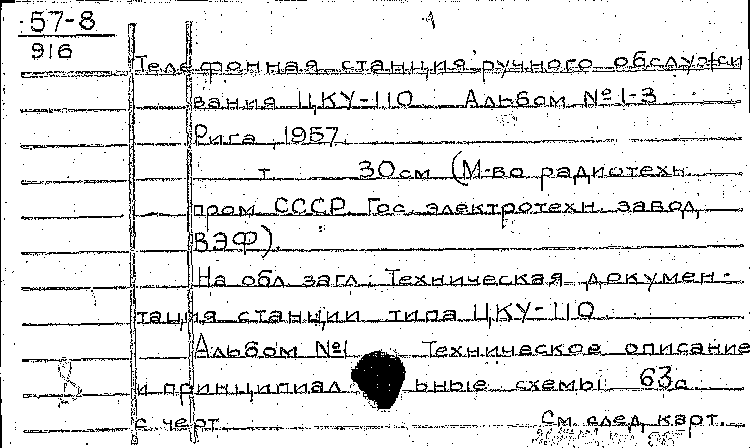 57-8
916
Телефонная станция ручного обслужи
вания ЦКУ-110 Альбом №1-3
Рига, 1957.
т. 30см (М-во радиотехн.
пром СССР. Гос. электротехн. завод
ВЭФ).
На обл. загл.: Техническая докумен-
тация станции типа ЦКУ-110
Альбом №1 Техническое описание
и принципиальные схемы 63с.
с черт. См. след. карт.